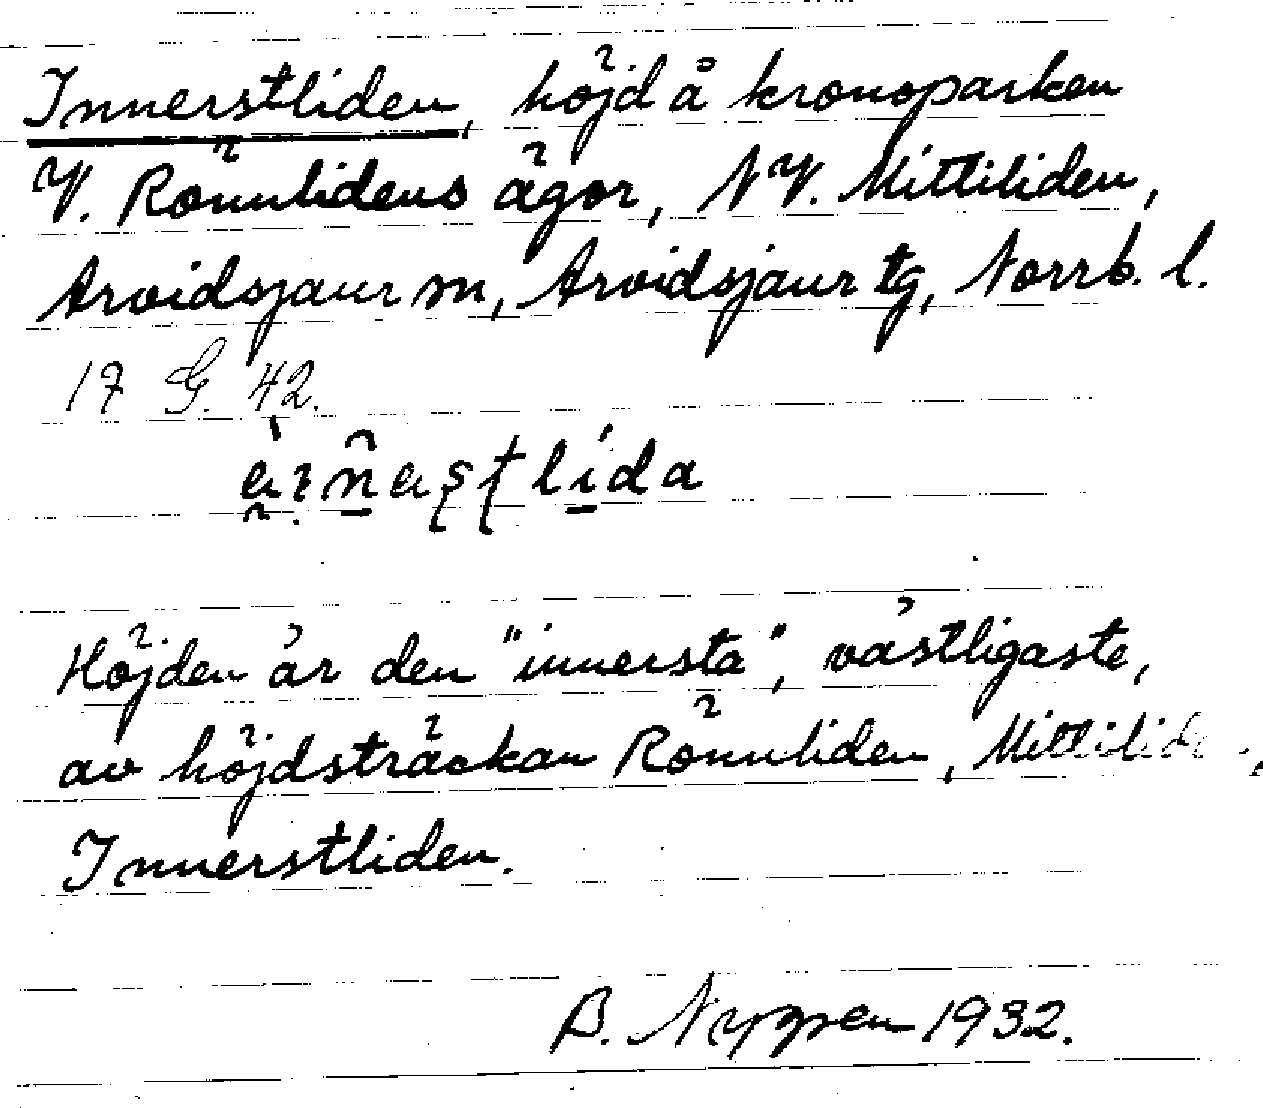 Innerstliden, höjd å kronoparken
V. Rönnlidens ägor, NV. Mittiliden,
Arvidsjaur sn, Arvidsjaur tg, Norrb. l.
17 G. 42.
Höjden är den "innersta", västligaste,
av höjdsträckan Rönnliden,
Innerstliden.
B. Nygren 1932.